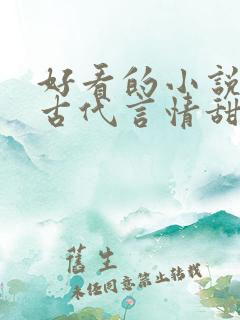 好看的小說
古代言情甜
舊生
未经同意禁止转载